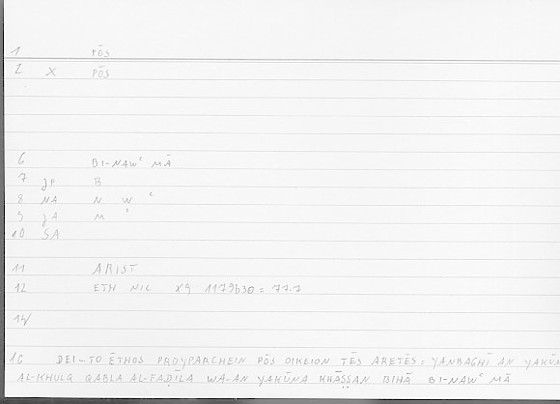 1 PŌS
2 X PŌS
6 BI-NAWʿ MĀ
7 JP B
8 NA N W ʿ
9 JA M ʾ
10 SA
11 ARIST
12 ETH NIC X9 1179b30 = 77.7
14/
16 DEI-TO ĒTHOS PROYPARCHEIN PŌS OIKEION TĒS ARETĒS; YANBAGHĪ AN YAKŪN
AL-KHULQ QABLA AL-FAḌĪLA WA-AN YAKŪNA KHĀṢṢAN BIHĀ BI-NAWʿ MĀ